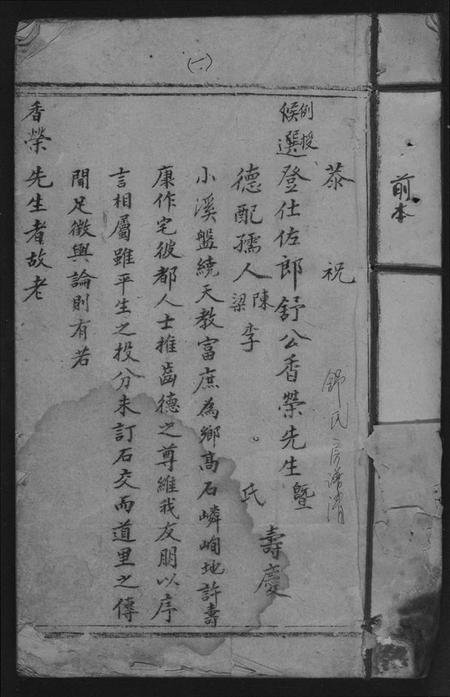 前本
(一)
恭祝
例授
候選登仕佐郎舒公香榮先生暨
德配孺人陳李梁氏壽慶
小溪盤繞天教富庶為鄉高石嶙峋地許壽
康作宅彼都人士推齒德之尊維我友朋以序
言相屬雖平生之投分未訂石交而道里之傳
聞足徵輿論則有若
香榮先生者故老